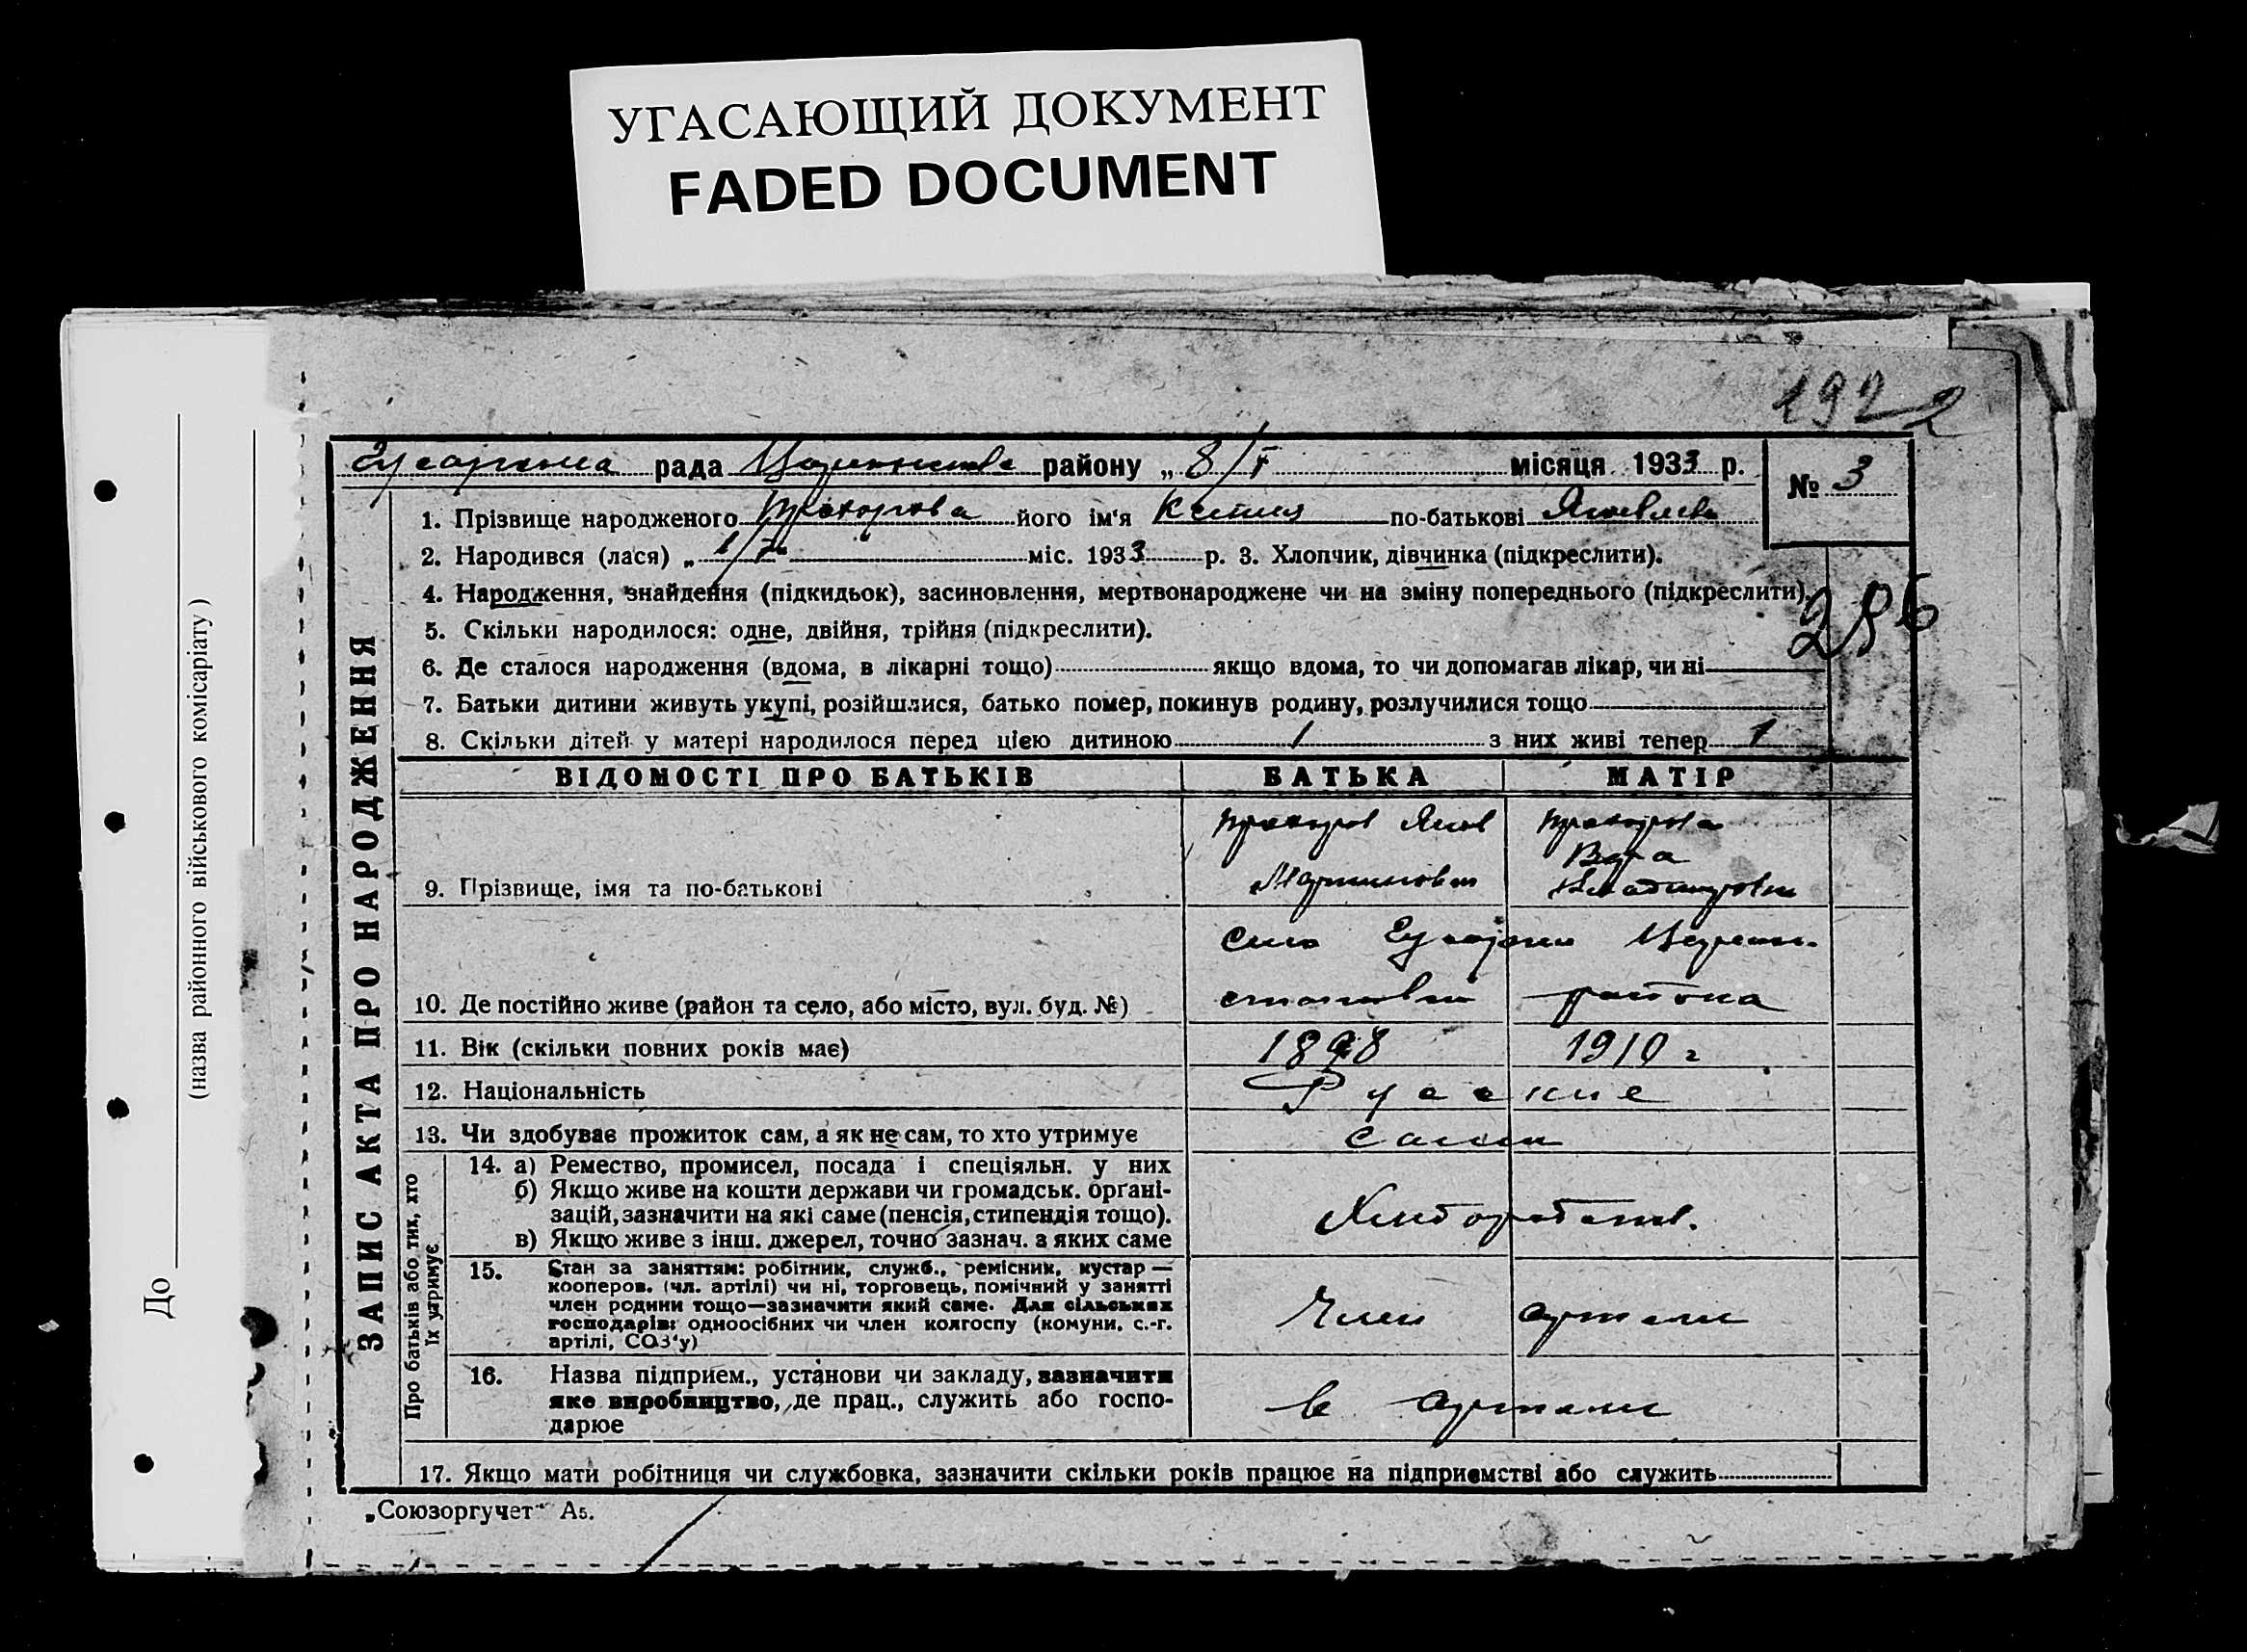 УГАСАЮЩИЙ ДОКУМЕНТ
FADED DOCUMENT
До
(назва районного військового комісаріату)
1922
рада району „ 8/I місяця 1933 р.
№ 3
ЗАПИС АКТА ПРО НАРОДЖЕННЯ
1. Прізвище народженого Прохорова його ім'я по-батькові
2. Народився (лася) „ міс. 1933 р. 3. Хлопчик, дівчинка (підкреслити).
4. Народження, знайдення (підкидьок), засиновлення, мертвонароджене чи на зміну попереднього (підкреслити).
5. Скільки народилося: одне, двійня, трійня (підкреслити).
6. Де сталося народження (вдома, в лікарні тощо) якщо вдома, то чи допомагав лікар, чи ні
7. Батьки дитини живуть укупі, розійшлися, батько помер, покинув родину, розлучилися тощо
8. Скільки дітей у матері народилося перед цією дитиною 1 з них живі тепер 1
ВІДОМОСТІ ПРО БАТЬКІВ БАТЬКА МАТІР
Прохоров Яков Прохорова
Вера
9. Прізвище, імя та по-батькові Мартинович Владимировна
село
10. Де постійно живе (район та село, або місто, вул. буд. №) района
11. Вік (скільки повних років має) 1898 1910 г
12. Національність Русские
13. Чи здобуває прожиток сам, а як не сам, то хто утримує сами
Про батьків або тих, хто їх утримує
14. а) Ремество, промисел, посада і спеціяльн. у них
б) Якщо живе на кошти держави чи громадськ. органі-
зацій, зазначити на які саме (пенсія, стипендія тощо).
в) Якщо живе з інш. джерел, точно зазнач. з яких саме
Хлебороб
15. Стан за заняттям: робітник, служб., ремісник, кустар —
кооперов. (чл. артілі) чи ні, торговець, помічний у занятті
член родини тощо—зазначити який саме. Для сільських
господарів: одноосібних чи член колгоспу (комуни, с.-г.
артілі, СОЗ'у)
Член артели
16. Назва підприєм., установи чи закладу, зазначити
яке виробництво, де прац., служить або госпо-
дарює
в артели
17. Якщо мати робітниця чи службовка, зазначити скільки років працює на підприємстві або служить
„Союзоргучет" А5.